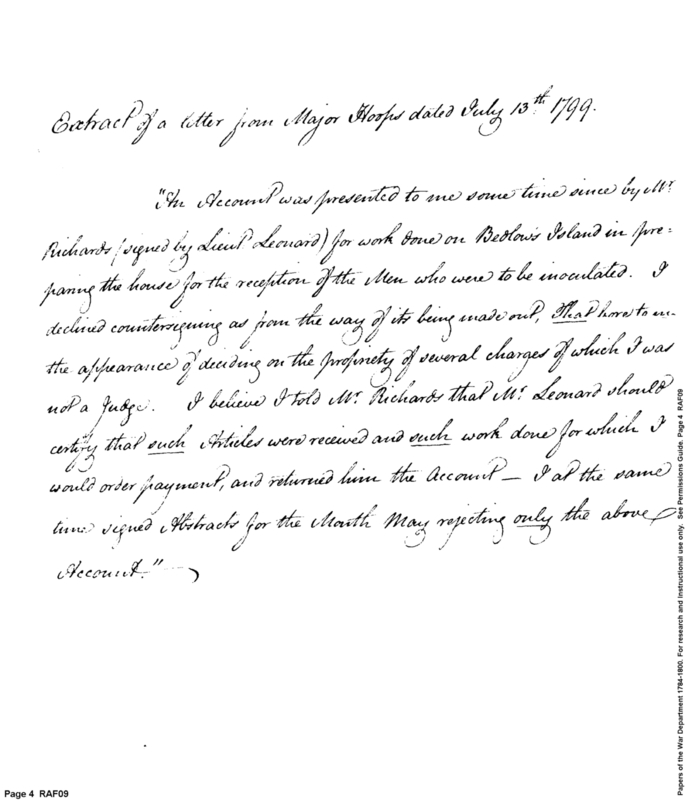 Extract of a letter from Major Hoops dated July 13th. 1799.
"An Account was presented to me some time since by Mr.
Richards (signed by Lieut Leonard) for work done on Bedlow's Island in pre=
paring the house for the reception of the Men who were to be inoculated. I
declined countersigning as from the way of its being made out, that
the appearance of deciding on the propriety of several charges of which I was
not a Judge. I believe I told Mr. Richards that Mr. Leonard should
certify that such Articles were received and such work done for which I
would order payment, and returned him the Account — I at the same
time signed Abstracts for the Month May rejecting only the above
Account."
Page 4 RAF09
Papers of the War Department 1784-1800. For research and instructional use only. See Permissions Guide. Page 4 RAF09